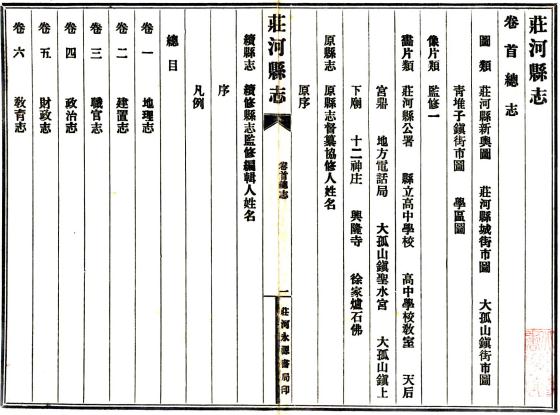 莊河縣志
卷首總志
圖類 莊河縣新輿圖 莊河縣城街市圖 大孤山鎮街市圖
青堆子鎮街市圖 學區圖
像片類 監修一
畫片類 莊河縣公署 縣立高中學校 高中學校教室 天后
宮鼎 地方電話局 大孤山鎮聖水宮 大孤山鎮上
下廟 十二神庄 興隆寺 徐家爐石佛
原縣志 原縣志督纂協修人姓名
原序
莊河縣志
卷首總志
一
莊河永源書局印
續縣志 續修縣志監修編輯人姓名
序
凡例
總目
卷一 地理志
卷二 建置志
卷三 職官志
卷四 政治志
卷五 財政志
卷六 教育志